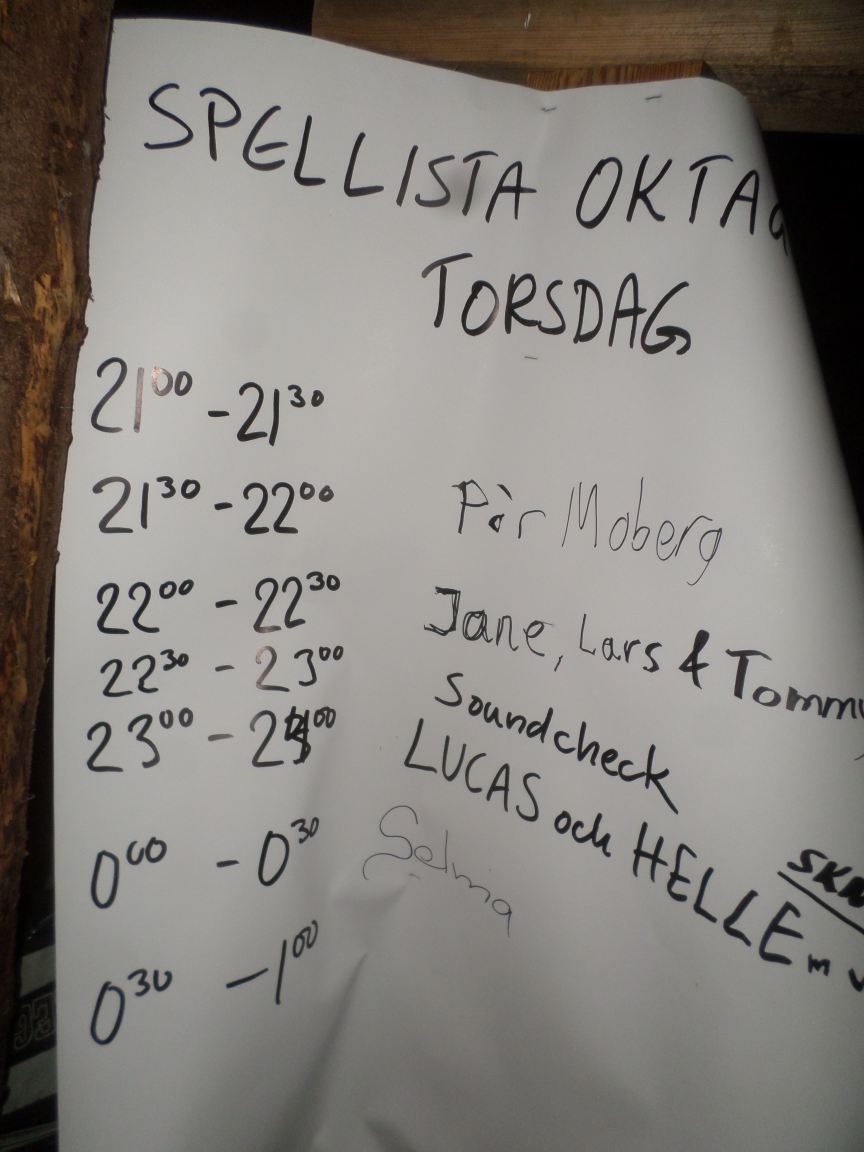 SPELLISTA OKTA
TORSDAG
21⁰⁰ - 21³⁰
21³⁰ - 22⁰⁰ Pär Moberg
22⁰⁰ - 22³⁰ Jane, Lars & Tommy
22³⁰ - 23⁰⁰ Soundcheck
23⁰⁰ - 24⁰⁰ LUCAS och HELLE m
0⁰⁰ - 0³⁰ Selma
0³⁰ - 1⁰⁰